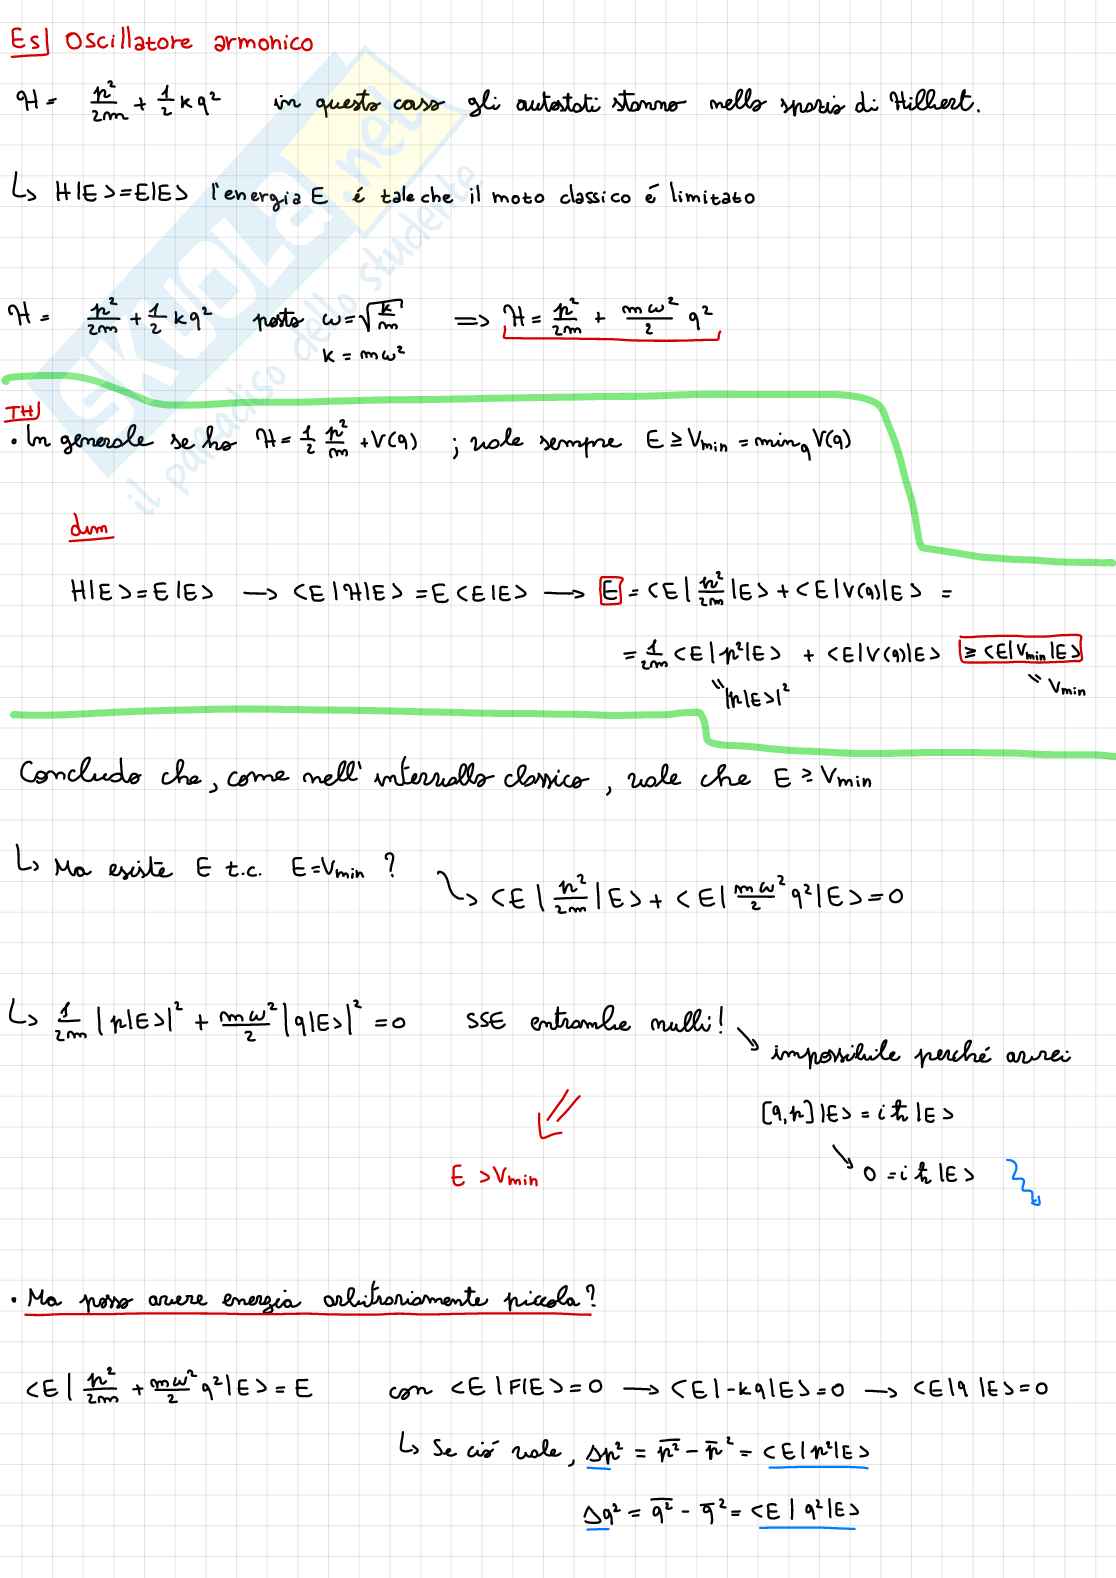 Es| Oscillatore armonico
H = p²/2m + 1/2 k q² in questo caso gli autostati stanno nello spazio di Hilbert.
↳ H|E> = E|E> l'energia E é tale che il moto classico é limitato
H = p²/2m + 1/2 k q² posto ω = √(k/m) => H = p²/2m + mω²/2 q²
k = mω²
TH|
• In generale se ho H = 1/2 p²/m + V(q) ; vale sempre E ≥ Vmin = min_q V(q)
dim
H|E> = E|E> → <E|H|E> = E<E|E> → E = <E|p²/2m|E> + <E|V(q)|E> =
= 1/2m <E|p²|E> + <E|V(q)|E> ≥ <E|Vmin|E>
" |p|E>|² " Vmin
Concludo che, come nell' intervallo classico, vale che E ≥ Vmin
↳ Ma esiste E t.c. E=Vmin ? ↳ <E|p²/2m|E> + <E|mω²/2 q²|E> = 0
↳ 1/2m |p|E>|² + mω²/2 |q|E>|² = 0 SSE entrambe nulli! ↘ impossibile perché avrei
[q,p]|E> = iħ|E>
↘ 0 = iħ|E>
E > Vmin
• Ma posso avere energia arbitrariamente piccola?
<E|p²/2m + mω²/2 q²|E> = E con <E|F|E> = 0 → <E|-kq|E> = 0 → <E|q|E> = 0
↳ Se ció vale, Δp² = p̄² - p̄² = <E|p²|E>
Δq² = q̄² - q̄² = <E|q²|E>
SKUOLA.net
il paradiso dello studente